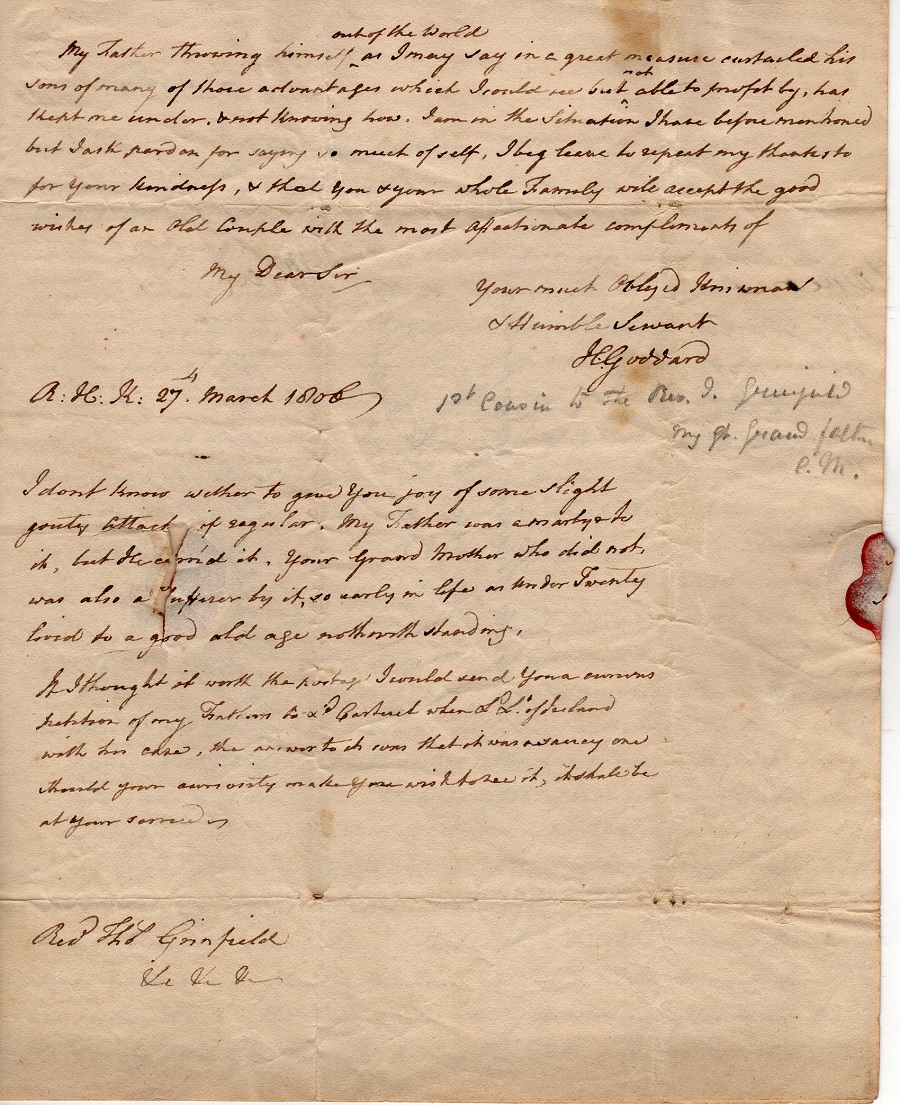 out of the World
My Father throwing himself ^ as I may say in a great measure curtailed his
not
sons of many of those advantages which I could see but ^ able to profit by, has
kept me under, & not knowing how. I am in the Situation I have before mentioned
but I ask pardon for saying so much of self, I beg leave to repeat my thanks to
for Your kindness, & that You & your whole Family will accept the good
wishes of an Old Couple with the most affectionate compliments of
My Dear Sir
Your much Obliged Kinsman
& Humble Servant
H: Goddard
A: H: K: 27th. March 1806
1st Cousin to the Rev. T. Grinfield
my gt. Grand father
C. M.
I dont know wether to give You joy of some slight
gouty attack if regular. My Father was a martyr to
it, but He earn'd it. Your Grand Mother who did not,
was also a sufferer by it, so early in life as under Twenty
lived to a good old age nothwithstanding.
If I thought it worth the postage I would send You a curious
petition of my Fathers to Ld Carteret when Ld Lt of Ireland
with his case, the answer to it was that it was a saucy one
should your curiosity make You wish to see it, it shall be
at Your service
Revd Thos Grinfield
&c &c &c